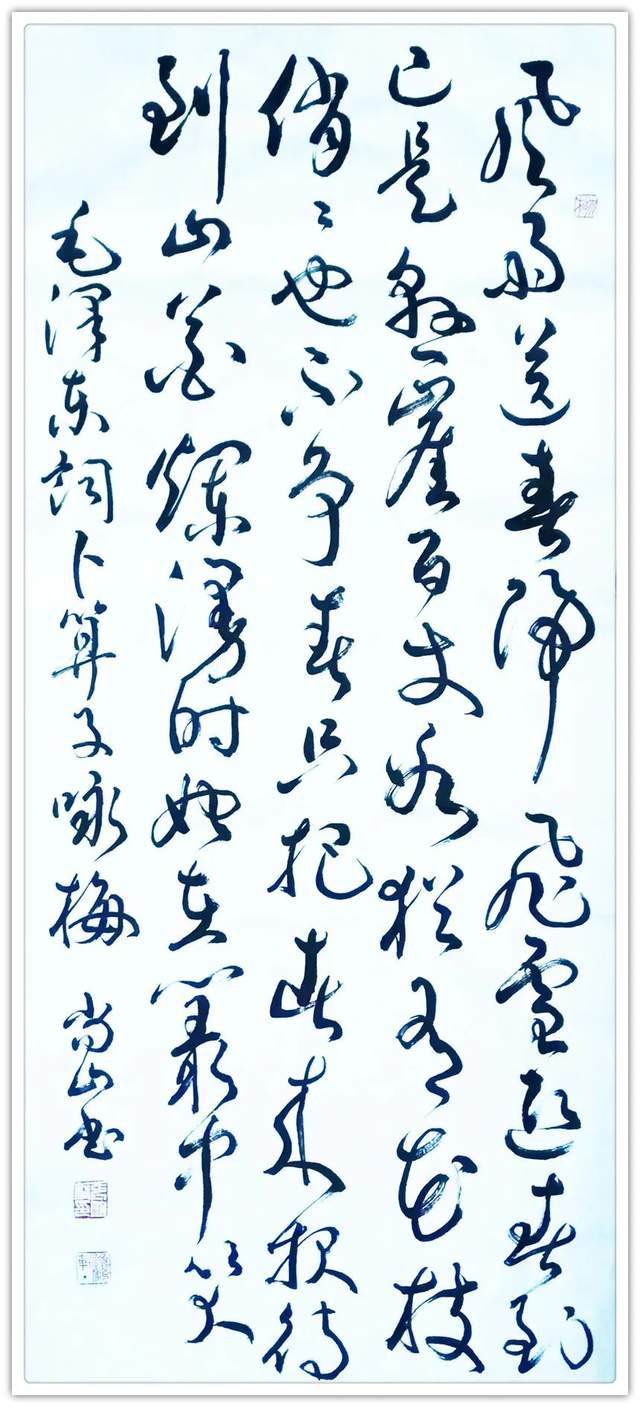 风雨送春归飞雪迎春到
已是懸崖百丈冰犹有花枝
俏〻也不争春只把春来报待
到山花爛漫时她在叢中笑
毛泽东词卜算子咏梅 尚山书